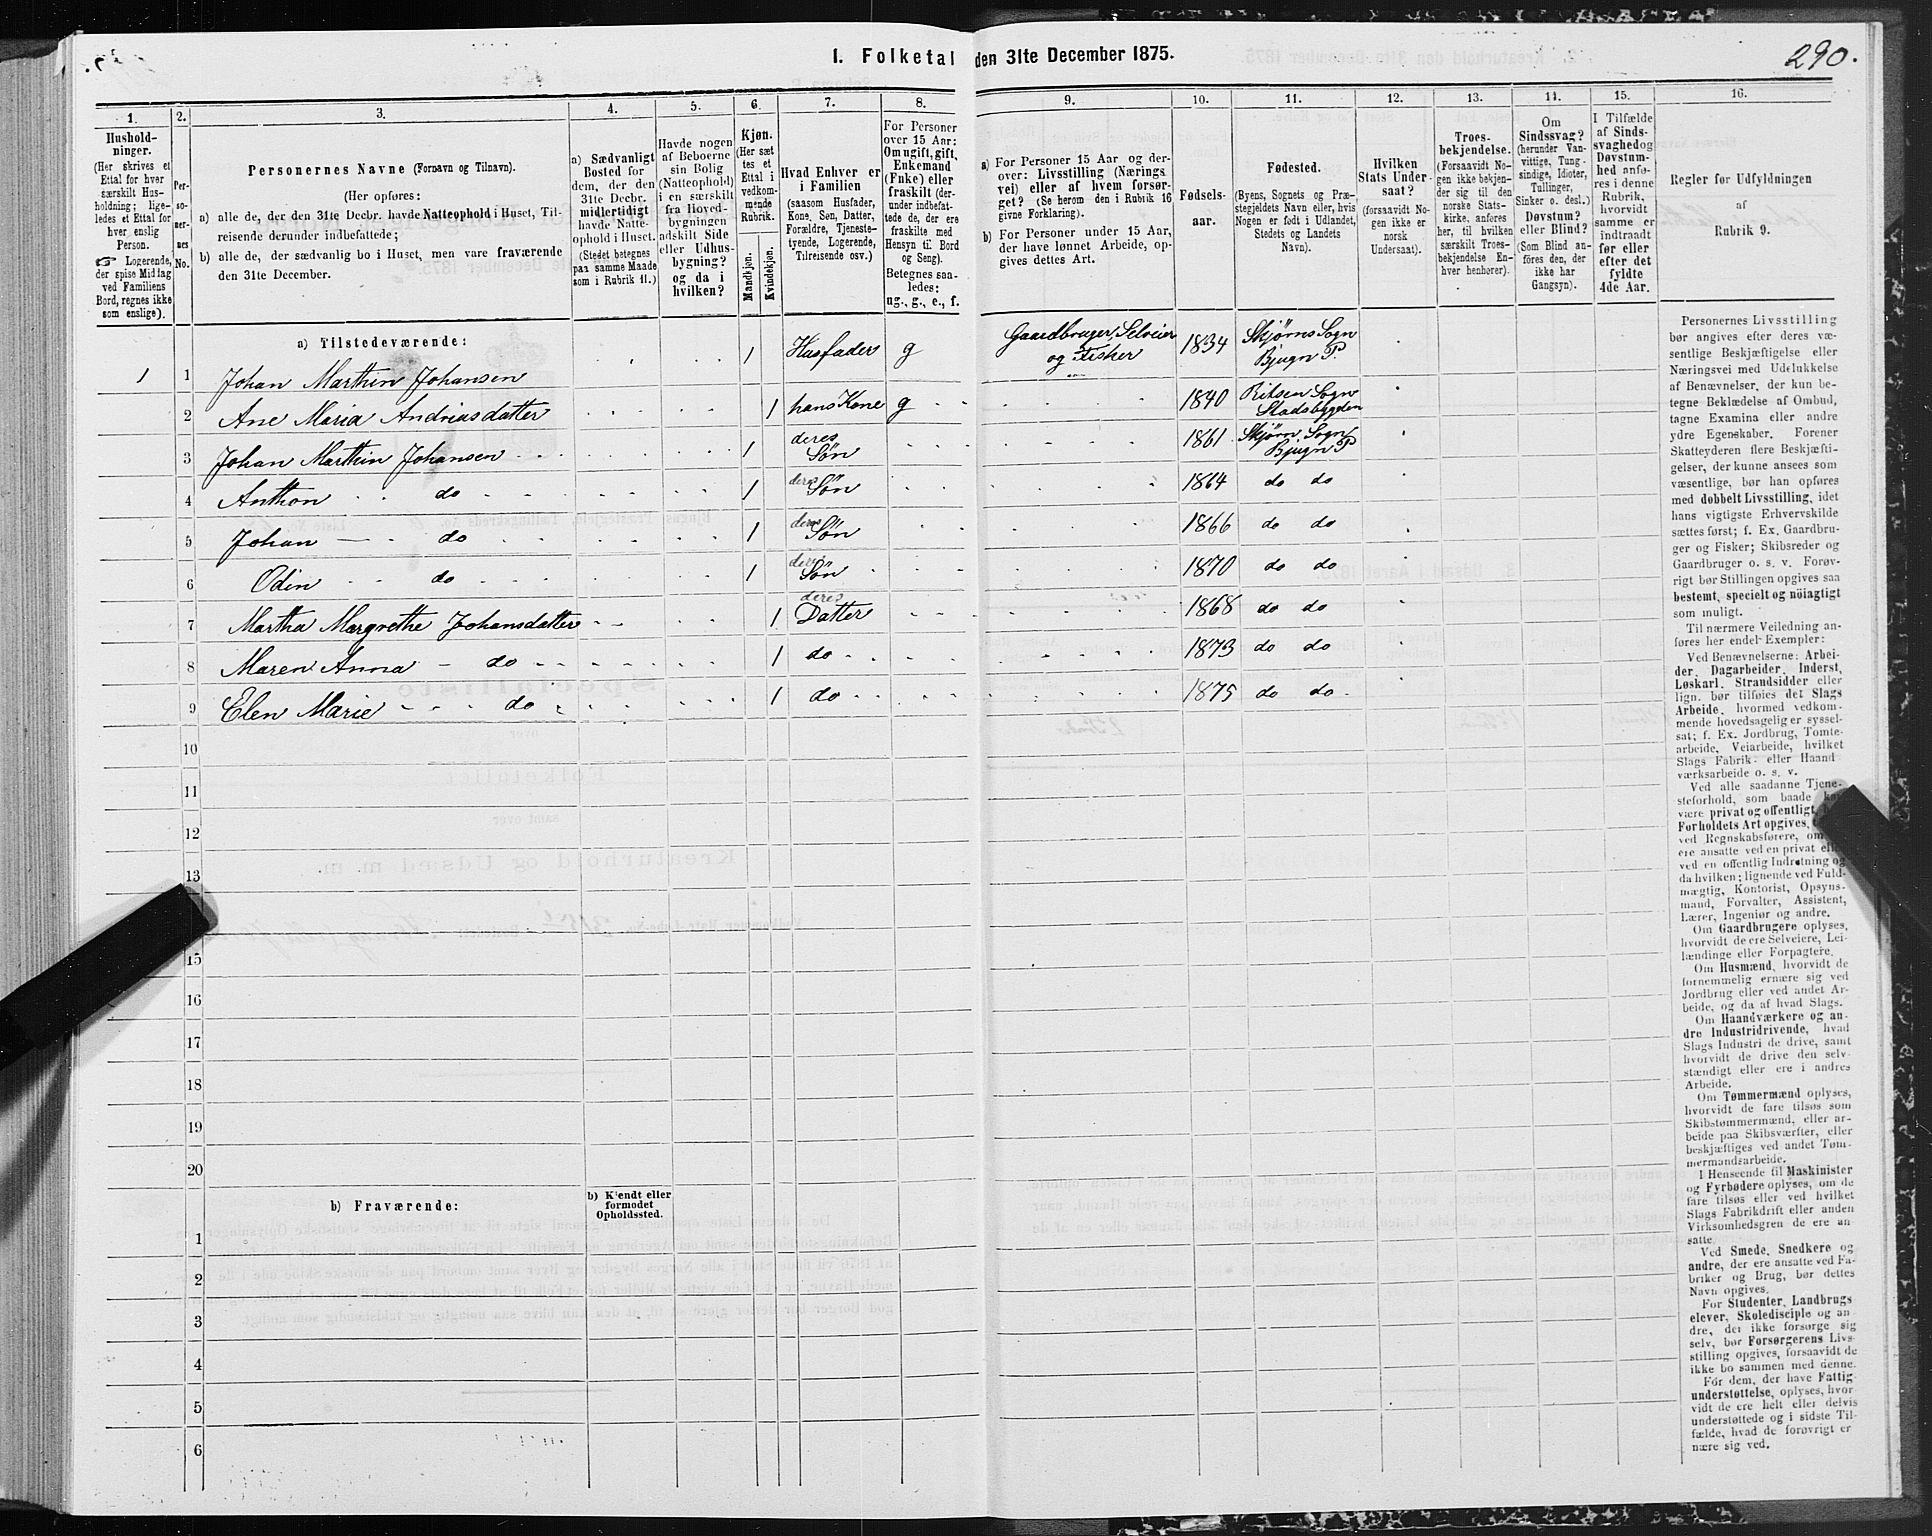 1. Folketal den 31te December 1875.
290.
1.
2.
3.
4.
5.
6.
7.
8.
9.
10.
11.
12.
13.
14.
15.
16.
Hushold-
ninger.
(Her skrives et
Ettal for hver
særskilt Hus-
holdning; lige-
ledes et Ettal for
hver enslig
Person.
☞ Logerende,
der spise Middag
ved Familiens
Bord, regnes ikke
som enslige).
Per-
so-
ner-
nes
No.
Personernes Navne (Fornavn og Tilnavn).
(Her opføres:
a) alle de, der den 31te Decbr. havde Natteophold i Huset, Til-
reisende derunder indbefattede;
b) alle de, der sædvanlig bo i Huset, men vare fraværende
den 31te December.
a) Sædvanligt
Bosted for
dem, der den
31te Decbr.
midlertidigt
havde Natte-
ophold i Huset.
(Stedet betegnes
paa samme Maade
som i Rubrik 11.)
Havde nogen
af Beboerne
sin Bolig
(Natteophold)
i en særskilt
fra Hoved-
bygningen
adskilt Side
eller Udhus-
bygning?
og da i
hvilken?
Kjøn.
(Her sæt
tes et
Ettal i
vedkom-
mende
Rubrik.
Mandkjøn.
Kvindekjøn.
Hvad Enhver er
i Familien
(saasom Husfader,
Kone, Søn, Datter,
Forældre, Tjeneste-
tyende, Logerende,
Tilreisende osv.)
For Personer
over 15 Aar:
Om ugift, gift,
Enkemand
(Enke) eller
fraskilt (der-
under indbefat-
tede de, der ere
fraskilte med
Hensyn til Bord
og Seng).
Betegnes saa-
ledes:
ug., g., e., f.
a) For Personer 15 Aar og der-
over: Livsstilling (Nærings
vei) eller af hvem forsør-
get? (Se herom den i Rubrik 16
givne Forklaring).
b) For Personer under 15 Aar,
der have lønnet Arbeide, op-
gives dettes Art.
Fødsels-
aar.
Fødested.
(Byens, Sognets og Præ-
stegjeldets Navn eller, hvis
Nogen er født i Udlandet,
Stedets og Landets
Navn).
Hvilken
Stats Under-
saat?
(forsaavidt No-
gen ikke er
norsk
Undersaat).
Troes-
bekjendelse.
(Forsaavidt No-
gen ikke bekjen-
der sig til den
norske Stats-
kirke, anføres
her, til hvilken
særskilt Troes-
bekjendelse En-
hver henhører).
Om
Sindssvag?
(herunder Van-
vittige, Tung-
sindige, Idioter,
Tullinger,
Sinker o. desl.)
Døvstum?
eller Blind?
(Som Blind an-
føres den, der
ikke har
Gangsyn).
I Tilfælde
af Sinds-
svaghed og
Døvstum-
hed anfø-
res i denne
Rubrik,
hvorvidt
samme er
indtraadt
før eller
efter det
fyldte
4de Aar.
Regler for Udfyldningen
af
Rubrik 9.
a) Tilstedeværende:
1 1 Johan Marthin Johansen 1 Husfader g Gaardbruger, Selveier og Fisker 1834 Skjørns Sogn Bjugn P.
2 Ane Maria Andriasdatter 1 hans Kone g 1840 Ritsen Sogn Stadsbygden
3 Johan Marthin Johansen 1 deres Søn 1861 Skjørn Sogn Bjugn P
4 Anthon do 1 deres Søn 1864 do do
5 Johan do 1 deres Søn 1866 do do
6 Odin do 1 deres Søn 1870 do do
7 Martha Margrethe Johansdatter 1 deres Datter 1868 do do
8 Maren Anna do 1 do 1873 do do
9 Elen Marie do 1 do 1875 do do
10
11
12
13
15
16
17
18
19
20
b) Fraværende:
b) Kjendt eller
formodet
Opholdssted.
1
2
3
4
5
6
Personernes Livsstilling
bør angives efter deres væ-
sentlige Beskjæftigelse eller
Næringsvei med Udelukkelse
af Benævnelser, der kun be-
tegne Beklædelse af Ombud,
tagne Examina eller andre
ydre Egenskaber. Forener
Skatteyderen flere Beskjæfti-
gelser, der kunne ansees som
væsentlige, bør han opføres
med dobbelt Livsstilling, idet
hans vigtigste Erhvervskilde
sættes først; f. Ex. Gaardbru-
ger og Fisker; Skibsreder og
Gaardbruger o. s. v. Forøv-
rigt bør Stillingen opgives saa
bestemt, specielt og nöiagtigt
som muligt.
Til nærmere Veiledning an-
føres her endel Exempler:
Ved Benævnelserne: Arbei-
der, Dagarbeider, Inderst,
Løskarl, Strandsidder eller
lign. bør tilføies det Slags
Arbeide, hvormed vedkom-
mende hovedsagelig er syssel-
sat; f. Ex. Jordbrug, Tomte-
arbeide, Veiarbeide, hvilket
Slags Fabrik- eller Haand
værksarbeide o. s. v.
Ved alle saadanne Tjene-
steforhold, som baade
være privat og offentligt,
Forholdets Art opgives,
ved Regnskabsførere, om
ere ansatte ved en privat
ved en offentlig Indretning og
da hvilken; lignende ved Fuld-
mægtig, Kontorist, Opsyns-
mand, Forvalter, Assistent,
Lærer, Ingeniør og andre.
Om Gaardbrugere oplyses,
hvorvidt de ere Selveiere, Lei-
lændinge eller Forpagtere.
Om Husmænd, hvorvidt de
fornemmelig ernære sig ved
Jordbrug eller ved andet Ar-
beide, og da af hvad Slags.
Om Haandværkere og an-
dre Industridrivende, hvad
Slags Industri de drive, samt
hvorvidt de drive den selv-
stændigt eller ere i andres
Arbeide.
Om Tømmermænd oplyses,
hvorvidt de fare tilsøs som
Skibstømmermænd, eller ar-
beide paa Skibsværfter, eller
beskjæftiges ved andet Tøm-
mermandsarbeide.
I Henseende til Maskinister
og Fyrbødere oplyses, om de
fare tilsøs eller ved hvilket
Slags Fabrikdrift eller anden
Virksomhedsgren de ere an-
satte.
Ved Smede, Snedkere og
andre, der ere ansatte ved Fa-
briker og Brug, bør dettes
Navn opgives.
For Studenter, Landbrugs
elever, Skoledisciple og an-
dre, der ikke forsørge sig
selv, bør Forsørgerens Livs-
stilling opgives, forsaavidt de
ikke bo sammen med denne.
For dem, der have Fattig-
understøttelse, oplyses, hvor-
vidt de ere helt eller delvis
understøttede og i sidste Til-
fælde, hvad de forøvrigt er
nære sig ved.